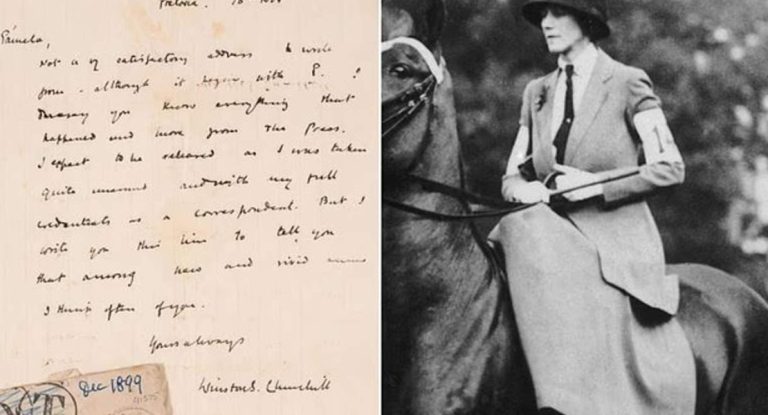 Pretoria. 18 Nov
Pamela,
Not a vy satisfactory address to write
from - although it begins with P. I
daresay you know everything that
happened and more from the Press.
I expect to be released as I was taken
quite unarmed and with my full
credentials as a correspondent. But I
write you this line to tell you
that among new and vivid scenes
I think often of you.
Yours always
Winston S. Churchill
Dec 1899
T